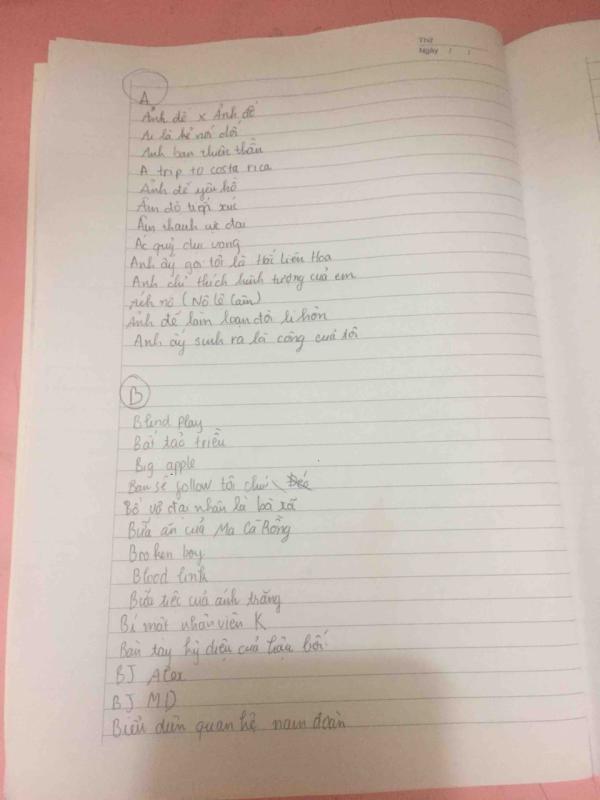 Thứ
Ngày / /
A
Ảnh đế x Ảnh đế
Ai là kẻ nói dối
Anh bạn thiên thần
A trip to costa rica
Ảnh đế yêu hồ
Âm đồ tiếp xúc
Âm thanh cực đại
Ác quỷ dục vọng
Anh ấy gọi tôi là Hắc Liên Hoa
Anh chỉ thích hình tượng của em
nô (Nô lệ câm)
Ảnh đế làm loạn đòi li hôn
Anh ấy sinh ra là công của tôi
B
Blind play
Bát tao triều
Big apple
Bạn sẽ follow tôi chứ
Bỏ vỡ đại nhân là bà xã
Bữa ăn của Ma Cà Rồng
Broken boy
Blood link
Bữa tiệc của ánh trăng
Bí mật nhân viên K
Bàn tay kỳ diệu của hậu bối
BJ Alex
BJ MD
Biểu diễn quan hệ nam đoàn